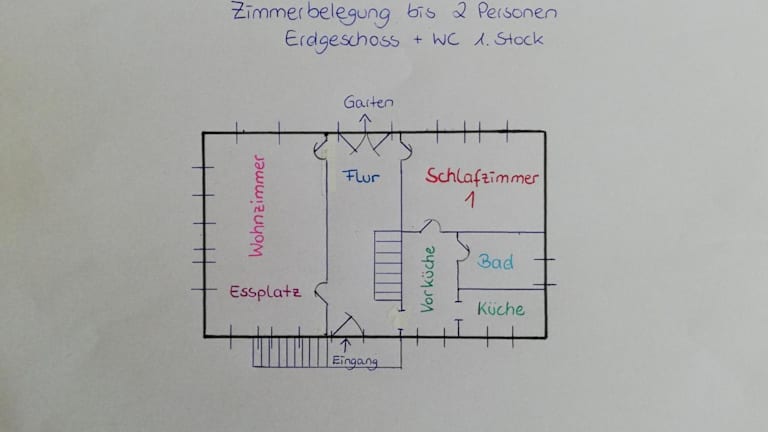 Zimmerbelegung bis 2 Personen
Erdgeschoss + WC 1. Stock
Garten
Flur
Schlafzimmer
1
Wohnzimmer
Vorküche
Bad
Essplatz
Küche
Eingang